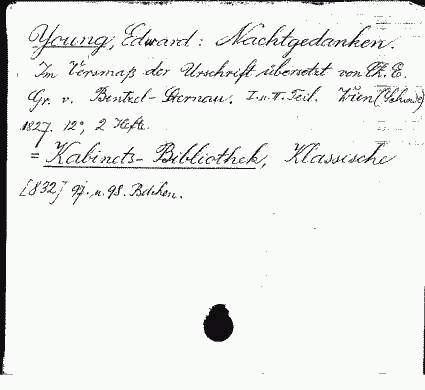 Young, Edward: Nachtgedanken.
Im Versmaß der Urschrift übersetzt von Ch. E.
Gr. v. Bentzel-Sternau. I. u. II. Teil. Wien
1827. 12°, 2 Hefte.
= Kabinets-Bibliothek, Klassische
[832] 97. u. 98. Bdchen.